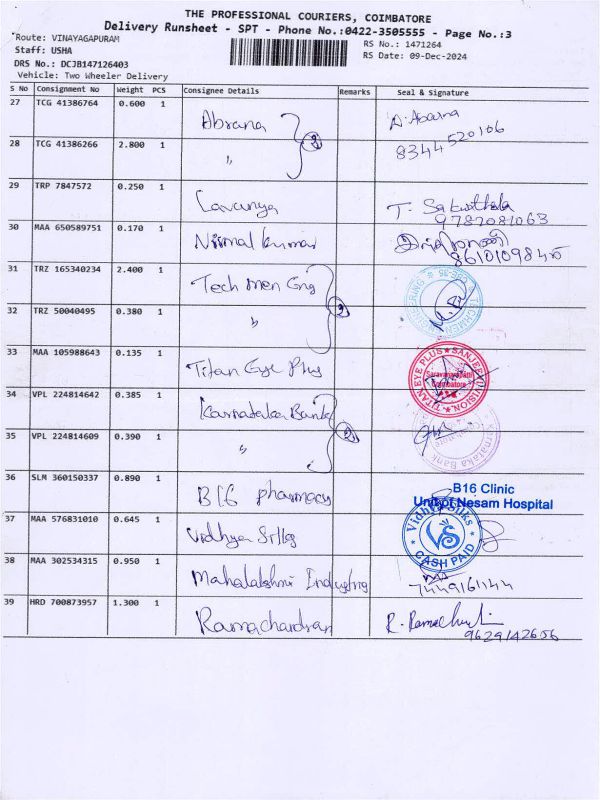 THE PROFESSIONAL COURIERS, COIMBATORE
Delivery Runsheet - SPT - Phone No.:0422-3505555 - Page No.:3
Route: VINAYAGAPURAM
RS No.: 1471264
Staff: USHA
RS Date: 09-Dec-2024
DRS No.: DCJB147126403
Vehicle: Two Wheeler Delivery
S No Consignment No Weight PCS Consignee Details Remarks Seal & Signature
27 TCG 41386764 0.600 1 Abrana A. Abarna
8344520106
28 TCG 41386266 2.800 1 " 2
29 TRP 7847572 0.250 1 Lavanya T. Sakunthala
9787081063
30 MAA 650589751 0.170 1 Nirmal Kumar
8610109845
31 TRZ 165340234 2.400 1 Tech men Eng
32 TRZ 50040495 0.380 1 " 2
33 MAA 105988643 0.135 1 Titan Eye Plus TITAN EYE PLUS ★ SANJEEV VISION ★ Saravanampatti Coimbatore
34 VPL 224814642 0.385 1 Karnataka Bank
35 VPL 224814609 0.390 1 " 2 Karnataka Bank
36 SLM 360150337 0.890 1 B16 pharmacy B16 Clinic
Unit of Nesam Hospital
37 MAA 576831010 0.645 1 Vidhya Silks Vidhya Silks VS CASH PAID
38 MAA 302534315 0.950 1 Mahalakshmi Industries 7449161144
39 HRD 700873957 1.300 1 Ramachandran R. Ramachandran
9629142656